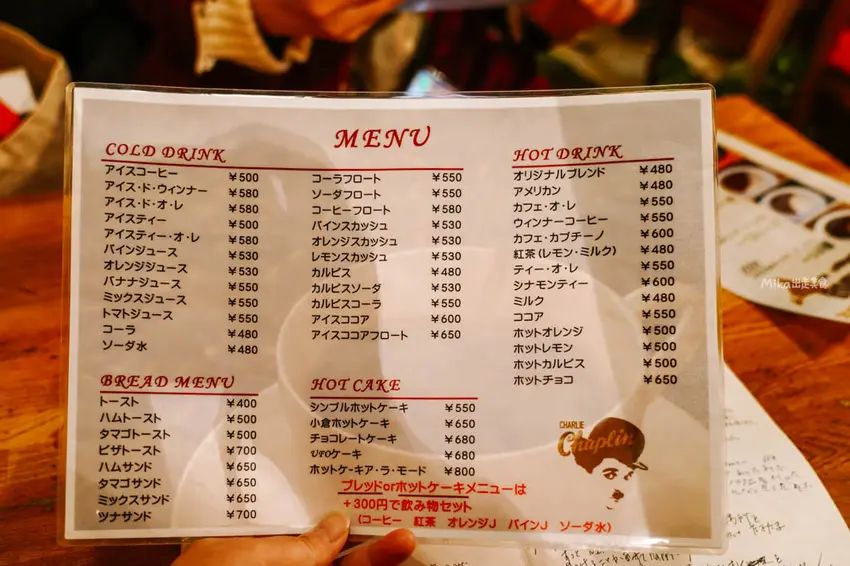 MENU
COLD DRINK
アイスコーヒー ¥500
アイス・ド・ウィンナー ¥580
アイス・ド・オ・レ ¥580
アイスティー ¥500
アイスティー・オ・レ ¥580
パインジュース ¥530
オレンジジュース ¥530
バナナジュース ¥550
ミックスジュース ¥550
トマトジュース ¥550
コーラ ¥480
ソーダ水 ¥480
コーラフロート ¥550
ソーダフロート ¥550
コーヒーフロート ¥580
パインスカッシュ ¥530
オレンジスカッシュ ¥530
レモンスカッシュ ¥530
カルピス ¥480
カルピスソーダ ¥530
カルピスコーラ ¥550
アイスココア ¥600
アイスココアフロート ¥650
HOT DRINK
オリジナルブレンド ¥480
アメリカン ¥480
カフェ・オ・レ ¥550
ウィンナーコーヒー ¥550
カフェ・カプチーノ ¥600
紅茶(レモン・ミルク) ¥480
ティー・オ・レ ¥550
シナモンティー ¥600
ミルク ¥480
ココア ¥550
ホットオレンジ ¥500
ホットレモン ¥500
ホットカルピス ¥500
ホットチョコ ¥650
BREAD MENU
トースト ¥400
ハムトースト ¥500
タマゴトースト ¥500
ピザトースト ¥700
ハムサンド ¥650
タマゴサンド ¥650
ミックスサンド ¥650
ツナサンド ¥700
HOT CAKE
シンプルホットケーキ ¥550
小倉ホットケーキ ¥650
チョコレートケーキ ¥680
¥680
ホットケーキア・ラ・モード ¥800
ブレッドorホットケーキメニューは
+300円で飲み物セット
(コーヒー 紅茶 オレンジJ パインJ ソーダ水)
CHARLIE
Chaplin
Mika出走美食